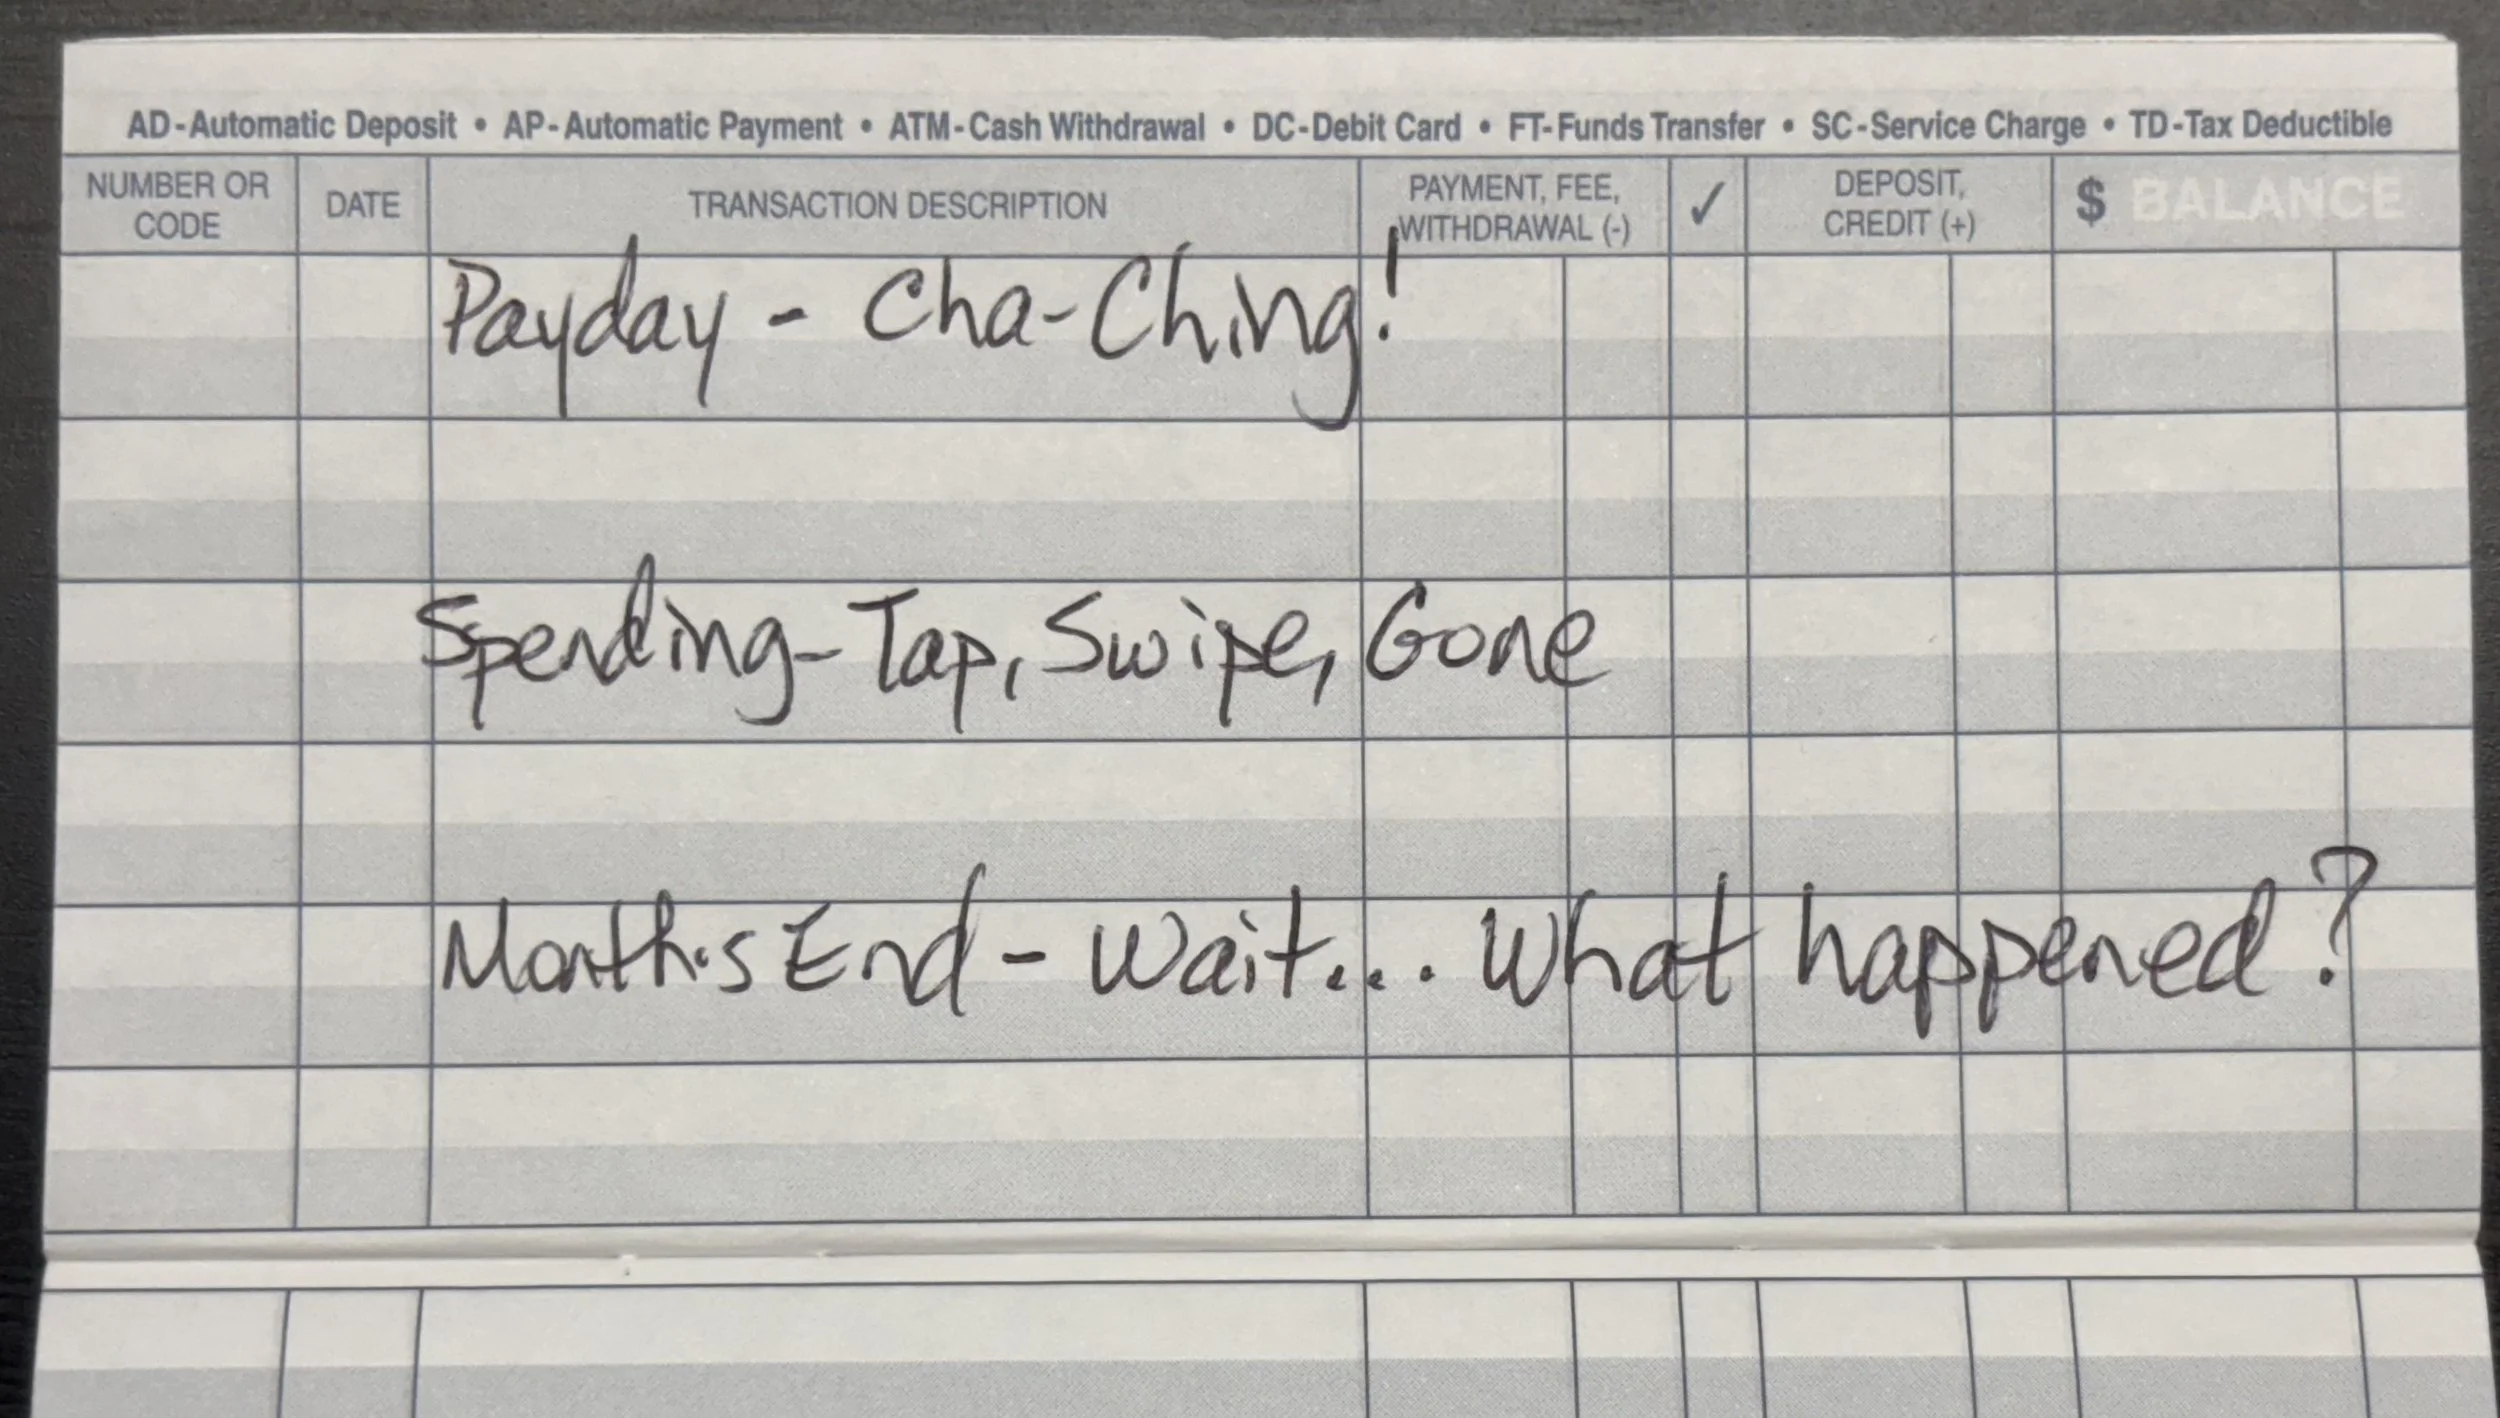 AD-Automatic Deposit • AP-Automatic Payment • ATM-Cash Withdrawal • DC-Debit Card • FT-Funds Transfer • SC-Service Charge • TD-Tax Deductible
NUMBER OR CODE DATE TRANSACTION DESCRIPTION PAYMENT, FEE, WITHDRAWAL (-) ✓ DEPOSIT, CREDIT (+) $ BALANCE
Payday - Cha-Ching!
Spending - Tap, Swipe, Gone
Month's End - Wait... What happened?